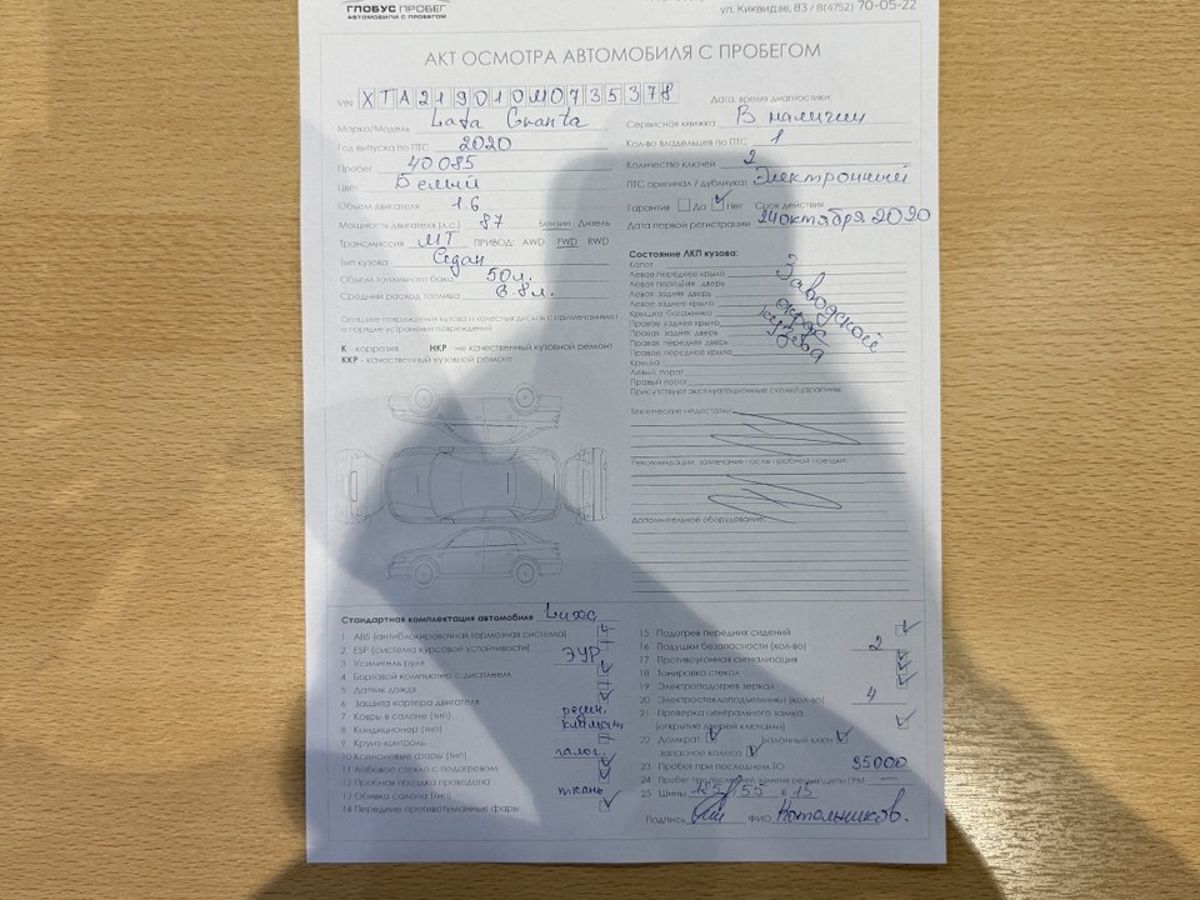 ГЛОБУС ПРОБЕГ
АВТОМОБИЛИ С ПРОБЕГОМ
ул. Киквидзе, 83 / 8(4752) 70-05-22
АКТ ОСМОТРА АВТОМОБИЛЯ С ПРОБЕГОМ
VIN XTA219010M0735378
Марка/Модель Lada Granta
Год выпуска по ПТС 2020
Пробег 40085
Цвет Белый
Объем двигателя 1.6
Мощность двигателя (л.с.) 87 Бензин Дизель
Трансмиссия МТ ПРИВОД: AWD FWD RWD
Тип кузова Седан
Объем топливного бака 50л.
Средний расход топлива 6.8л.
Дата, время диагностики:
Сервисная книжка В наличии
Кол-во владельцев по ПТС 1
Количество ключей 2
ПТС оригинал / дубликат Электронный
Гарантия Да Нет Срок действия
Дата первой регистрации 24 октября 2020
Опишите повреждения кузова и колесных дисков с примечаниями
о порядке устранения повреждений
К - коррозия НКР - не качественный кузовной ремонт
ККР - качественный кузовной ремонт
Состояние ЛКП кузова:
Капот
Левое переднее крыло
Левая передняя дверь
Левая задняя дверь
Левое заднее крыло
Крышка багажника
Правое заднее крыло
Правая задняя дверь
Правая передняя дверь
Правое переднее крыло
Крыша
Левый порог
Правый порог
Заводской
окрас
кузова
Присутствуют эксплуатационные сколы/царапины.
Технические недостатки:
Рекомендации, замечания после пробной поездки:
Дополнительное оборудование:
Стандартная комплектация автомобиля Luxe
1 ABS (антиблокировочная тормозная система)
2 ESP (система курсовой устойчивости)
3 Усилитель руля ЭУР
4 Бортовой компьютер с дисплеем
5 Датчик дождя
6 Защита картера двигателя
7 Ковры в салоне (тип) резин.
8 Кондиционер (тип) климат
9 Круиз-контроль
10 Ксеноновые фары (тип) галог.
11 Лобовое стекло с подогревом
12 Пробная поездка проведена
13 Обивка салона (тип) ткань
14 Передние противотуманные фары
15 Подогрев передних сидений
16 Подушки безопасности (кол-во) 2
17 Противоугонная сигнализация
18 Тонировка стекол
19 Электроподогрев зеркал
20 Электростеклоподъемники (кол-во) 4
21 Проверка центрального замка
(открытие дверей ключами)
22 Домкрат Балонный ключ
Запасное колесо
23 Пробег при последнем ТО 35000
24 Пробег при последней замене ремня/цепи ГРМ —
25 Шины 185/55 R 15
Подпись ФИО Котольников.